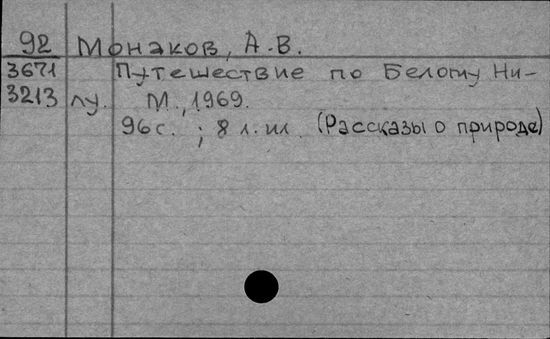 92 Монаков, А.В.
3671 Путешествие по Белому Ни-
3213 лу. М., 1969.
96 с. ; 8 л. ил. (Рассказы о природе)